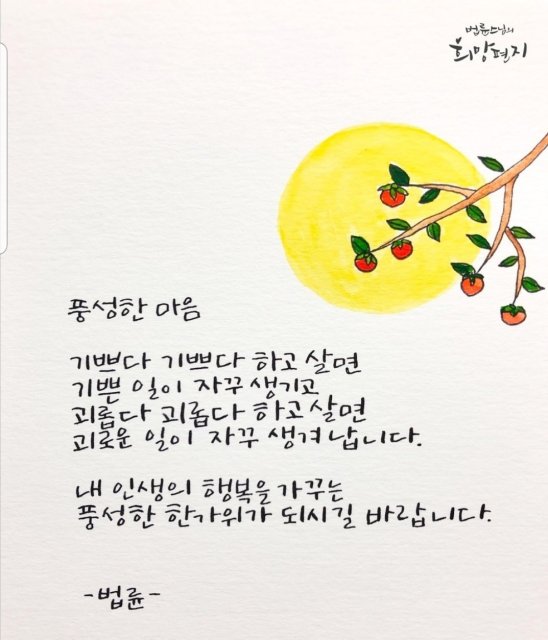 법륜스님의
희망편지
풍성한 마음
기쁘다 기쁘다 하고 살면
기쁜 일이 자꾸 생기고
괴롭다 괴롭다 하고 살면
괴로운 일이 자꾸 생겨 납니다.
내 인생의 행복을 가꾸는
풍성한 한가위가 되시길 바랍니다.
-법륜-